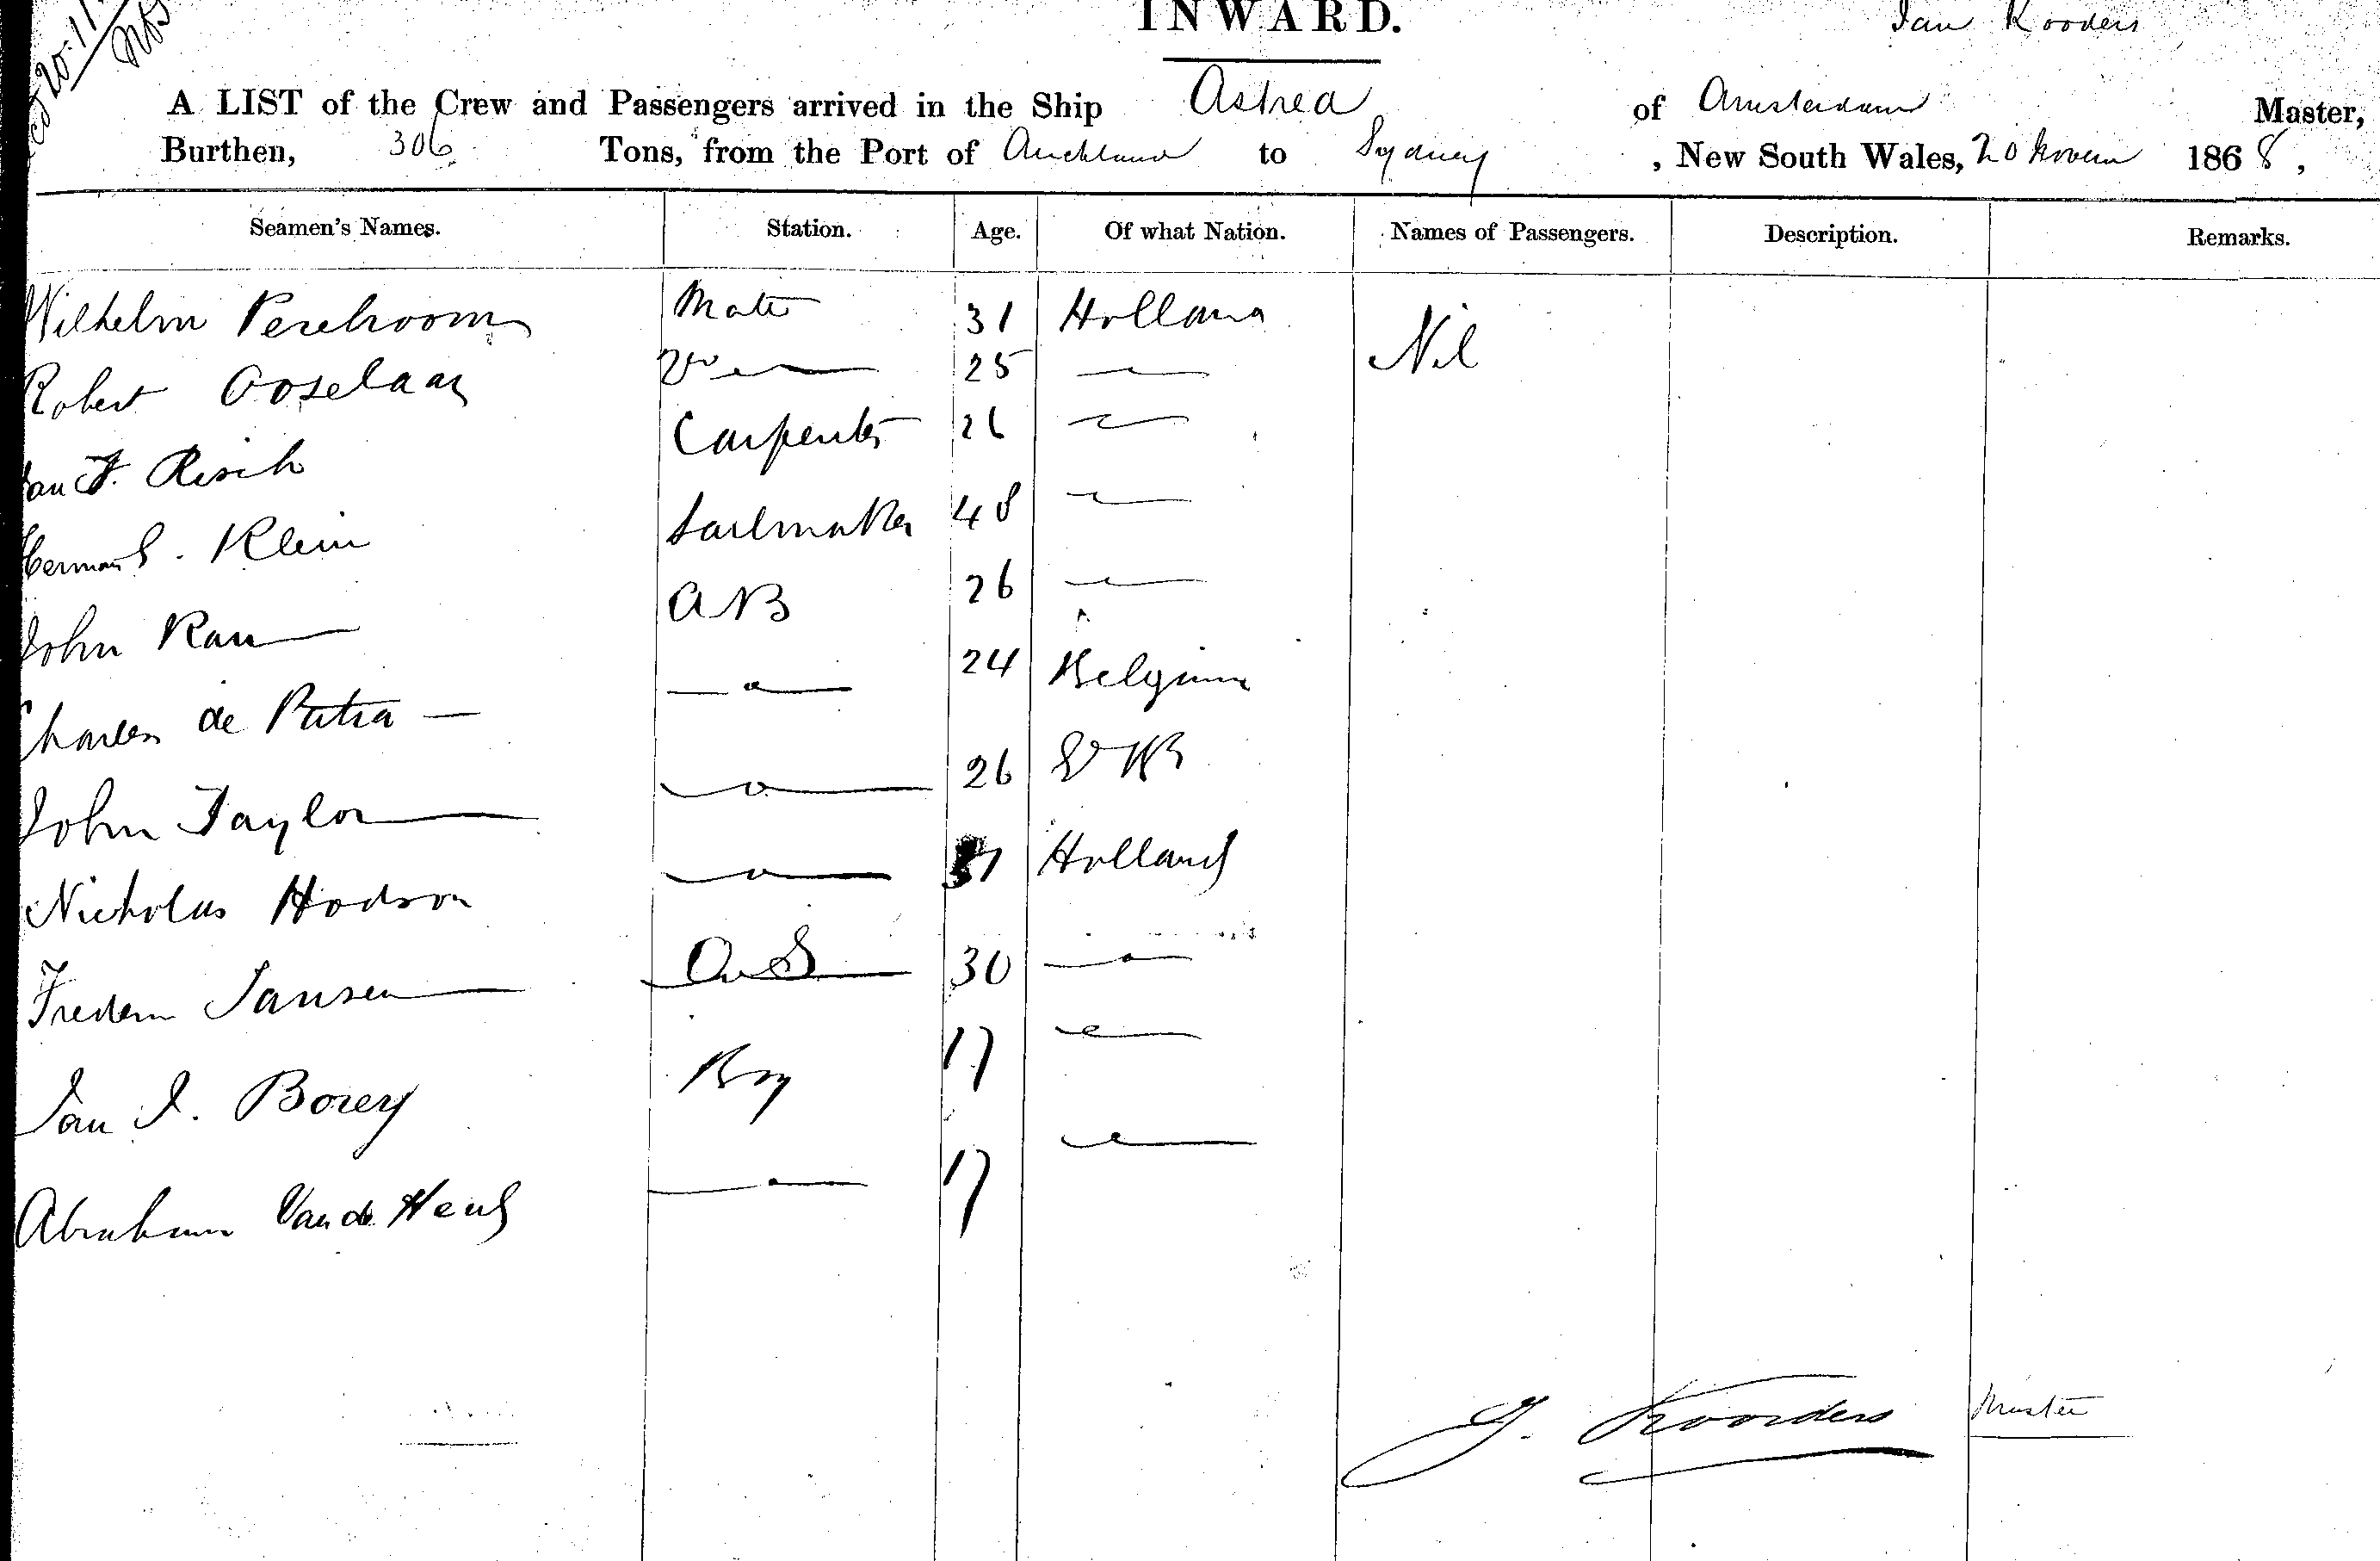 20.11
INWARD.
Jan Kooders
A LIST of the Crew and Passengers arrived in the Ship Astrea of Amsterdam Master,
Burthen, 306 Tons, from the Port of Auckland to Sydney , New South Wales, 20 Novem 1868,
Seamen's Names. Station. Age. Of what Nation. Names of Passengers. Description. Remarks.
Wilhelm Mate 31 Holland Nil
Robert Ooselaar 25
Jan F. Risch Carpenter 26
Herman S. Klein Sailmaker 48
John Rau AB 26
Charles de Putra 24 Belgium
John Taylor 26
Nicholas Hodson 31 Holland
Jansen O S 30
Jan J. Borey Boy 17
Abraham Van de 17
J. Koorders Master